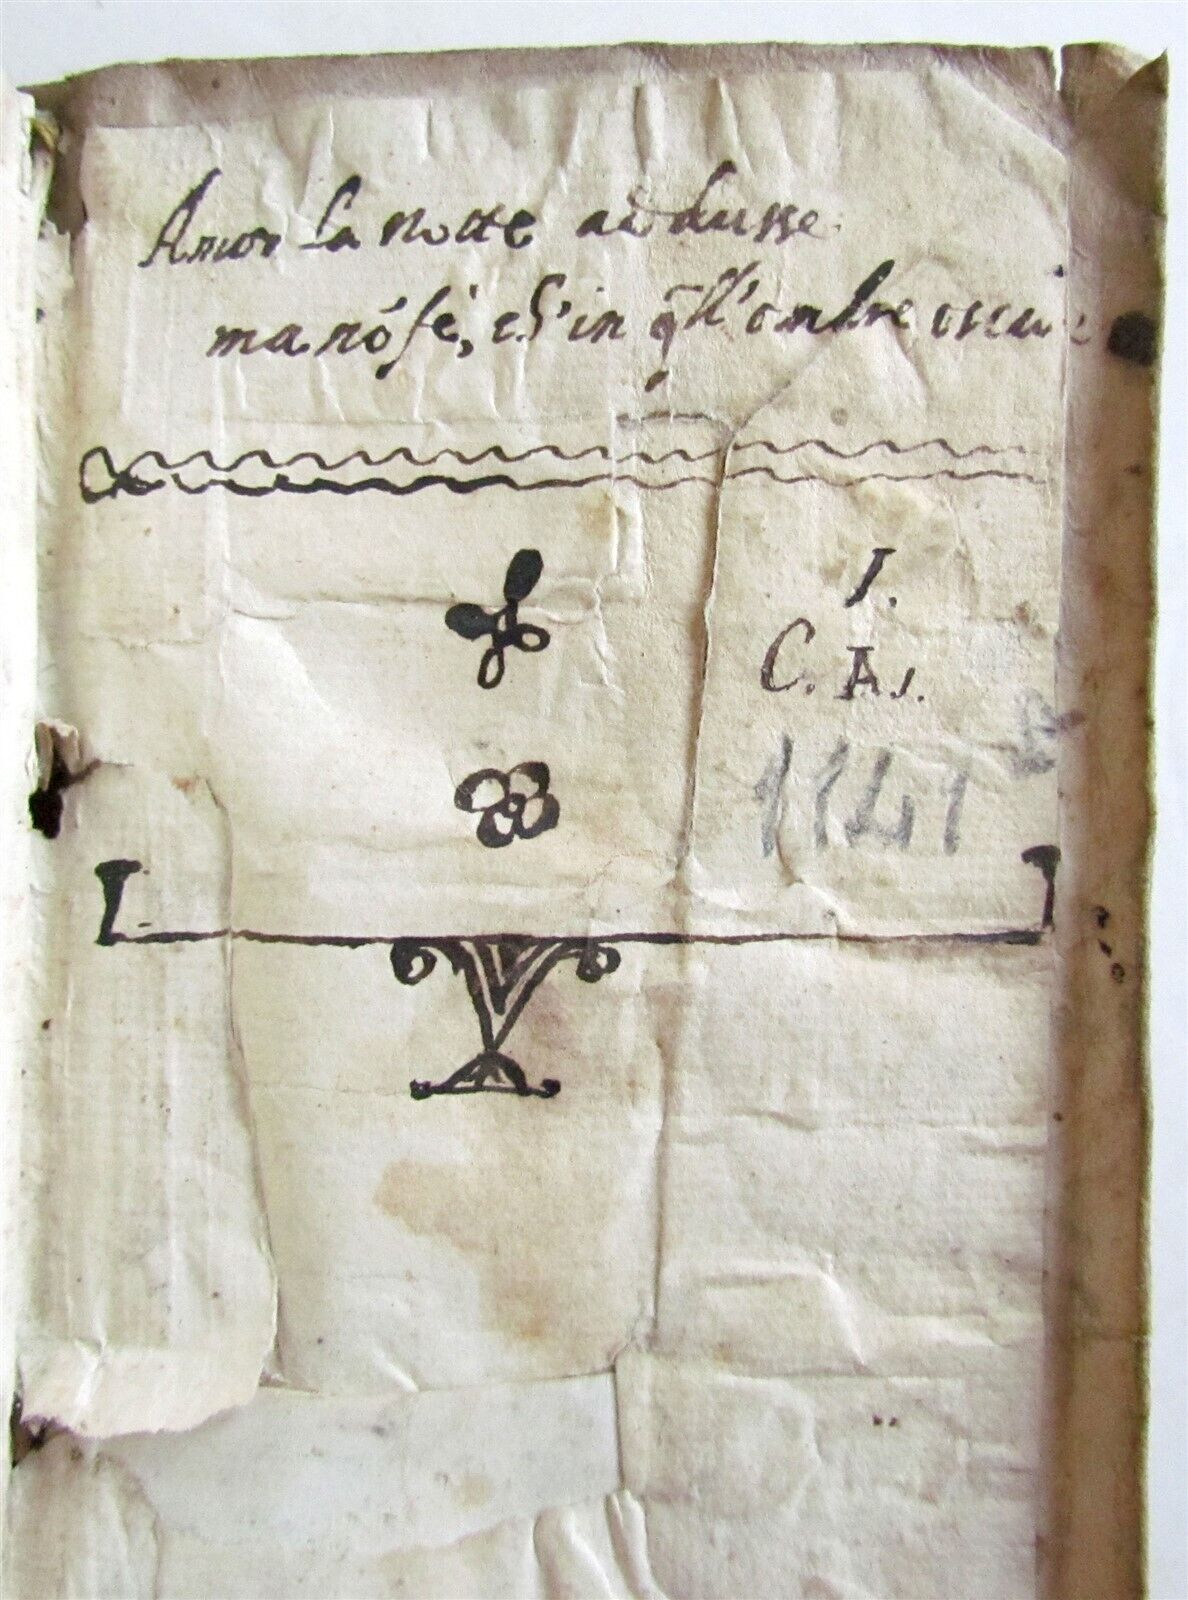 Amor la notte addusse
ma nó fè, ch'in q̄ll'ombre oscure
I.
C. A.
1141